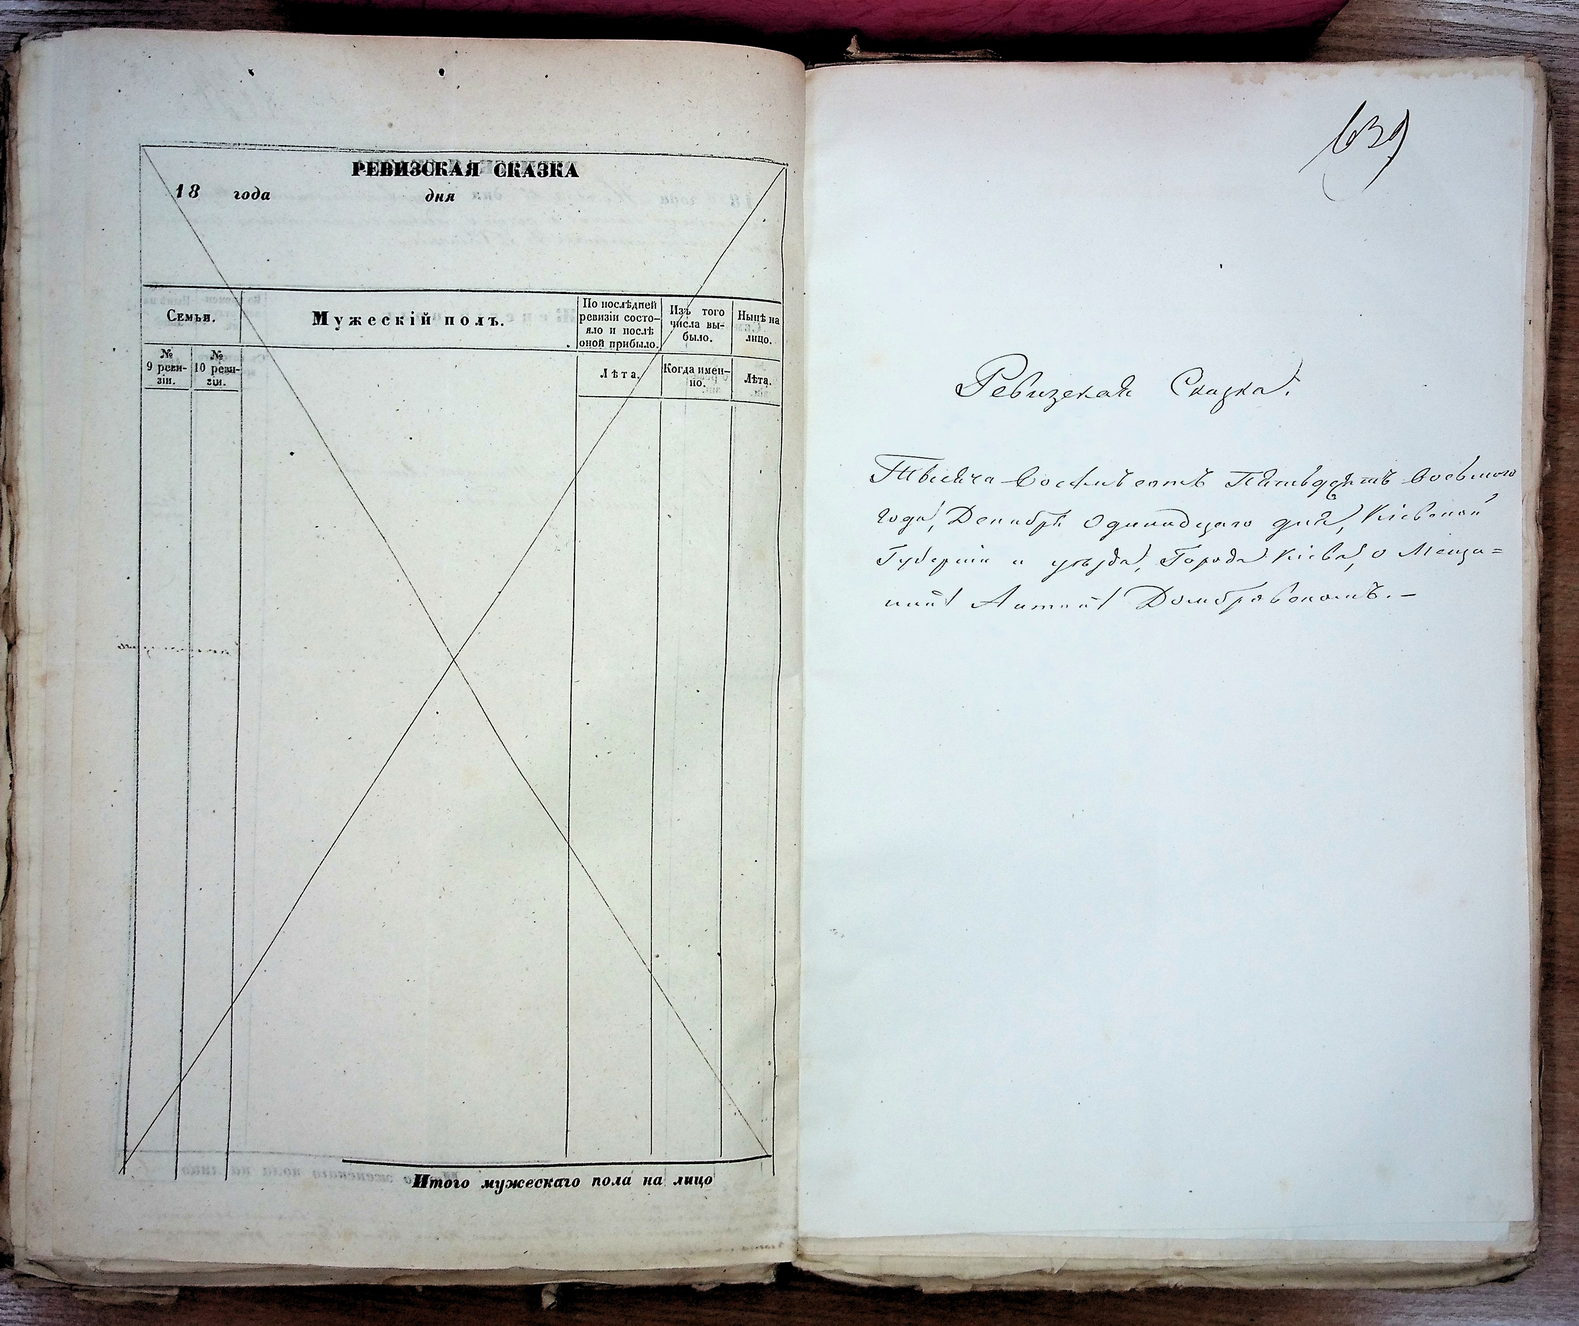 РЕВИЗСКАЯ СКАЗКА
18 года дня
Семьи.
Мужескій полъ.
По послѣдней
ревизіи состо-
яло и послѣ
оной прибыло.
Изъ того
числа вы-
было.
Нынѣ на
лицо.
№
9 реви-
зіи.
№
10 реви-
зіи.
Лѣта.
Когда имен-
но.
Лѣта.
Итого мужескаго пола на лицо
639
Ревизская Сказка.
Тысяча Восемьсотъ Пятьдесятъ Восьмого
года, Декабря одинадцаго дня, Кіевской
Губерніи и уѣзда, Города Кіева, о Меща=
нинѣ Антонѣ Домбровскомъ. —